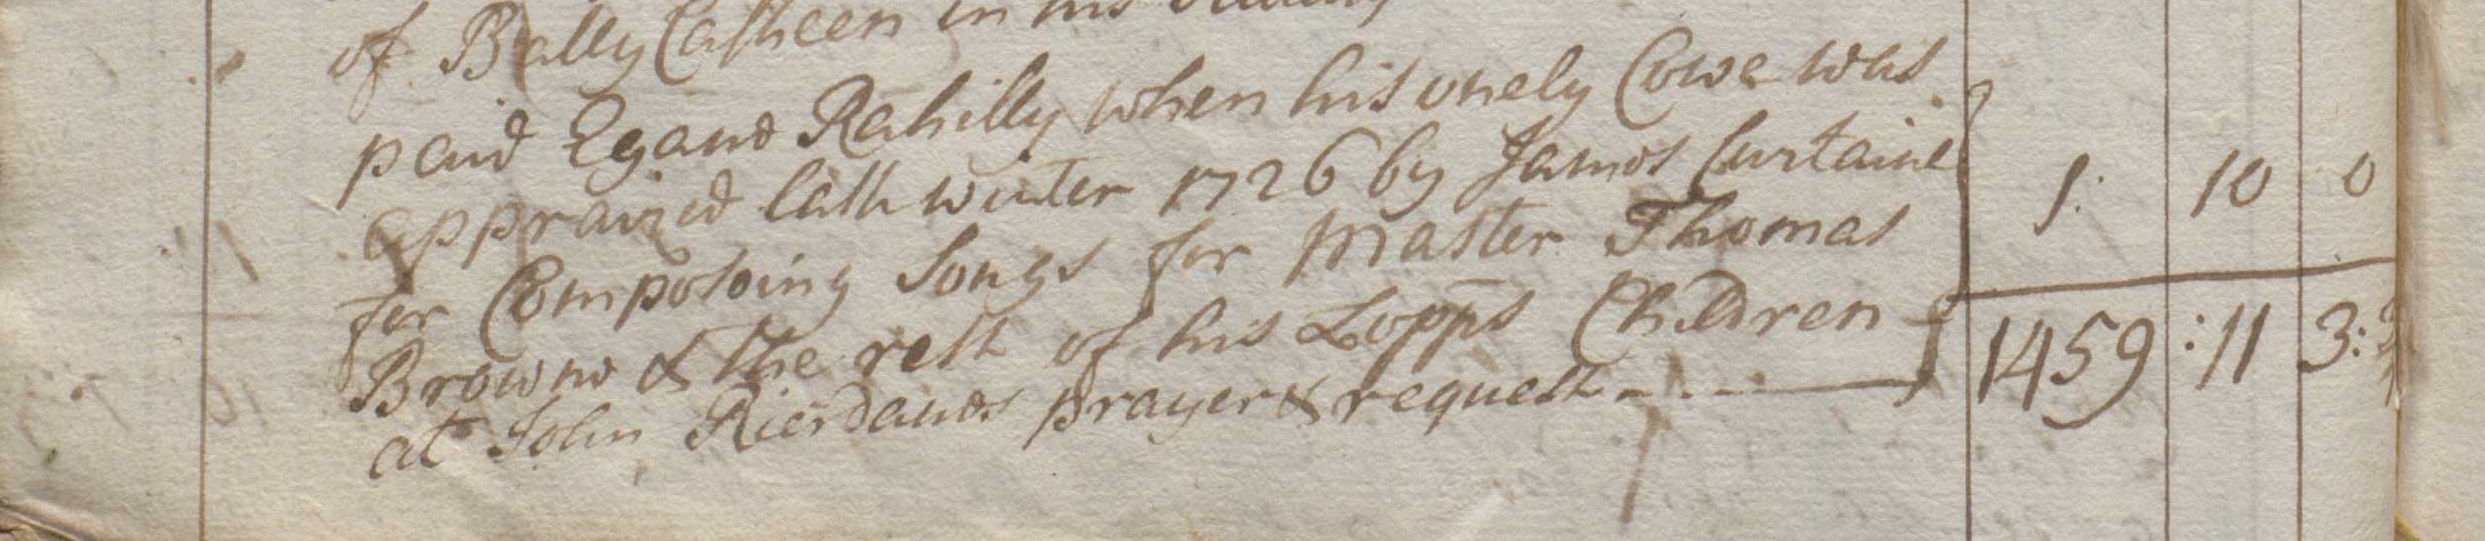 of Bally Casheen in his
paid Egano Rahilly when his onely Cowe was
appraized last winter 1726 by James Curtaine
for Composeing Songs for Master Thomas 1: 10 0
Browne & the rest of his Lopps Children
at John Rierdanes prayer & request 1459 :11 3: